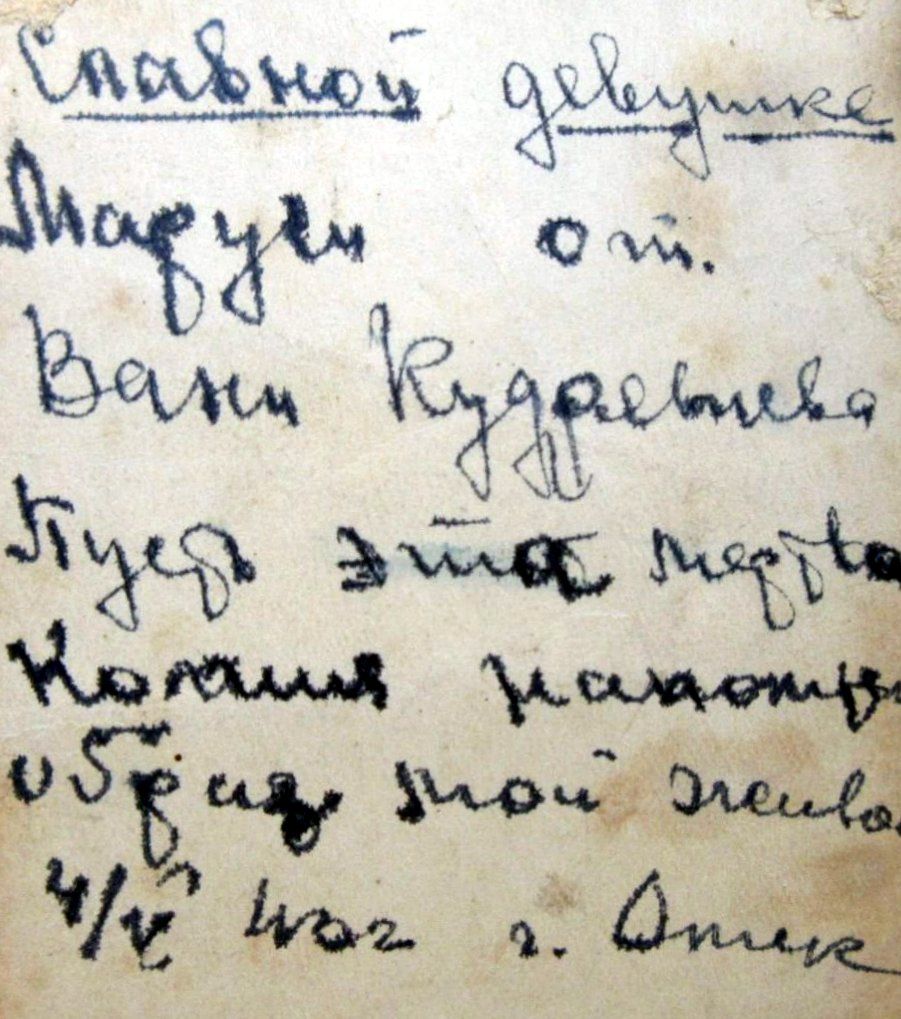 Славной девушке
Маруси от.
Вани Кудрявцева
Пусть эта мертва
Копия напомн
образ мой живо
4/V 40г г. Омск